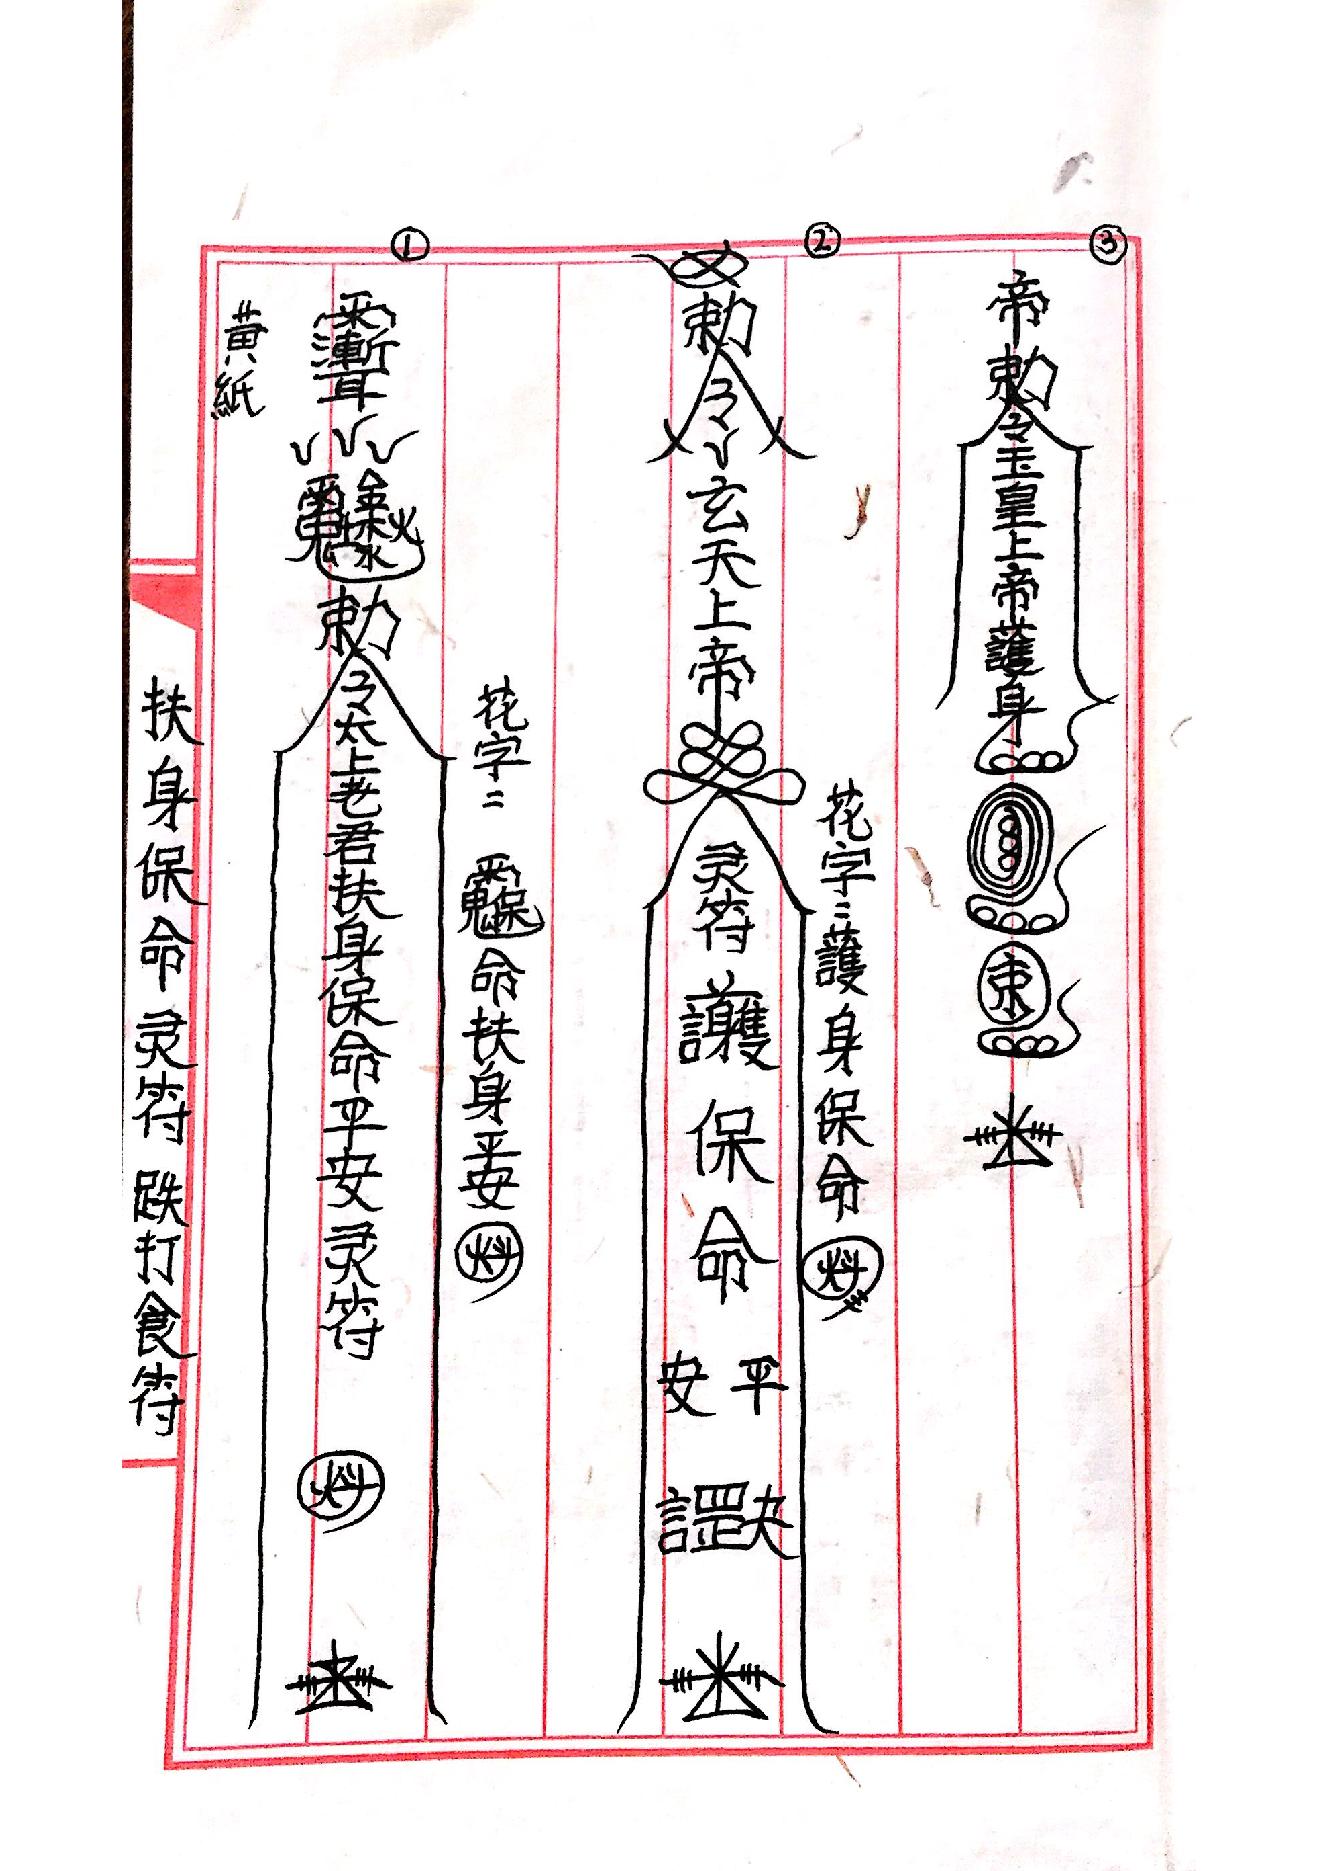 ③
帝
勅令玉皇上帝護身
束
②
勅令
玄天上帝
灵符護保命
平安
花字：護身保命
①
黄紙
勅令太上老君扶身保命平安灵符
花字：
命扶身平安
扶身保命灵符 跌打食符